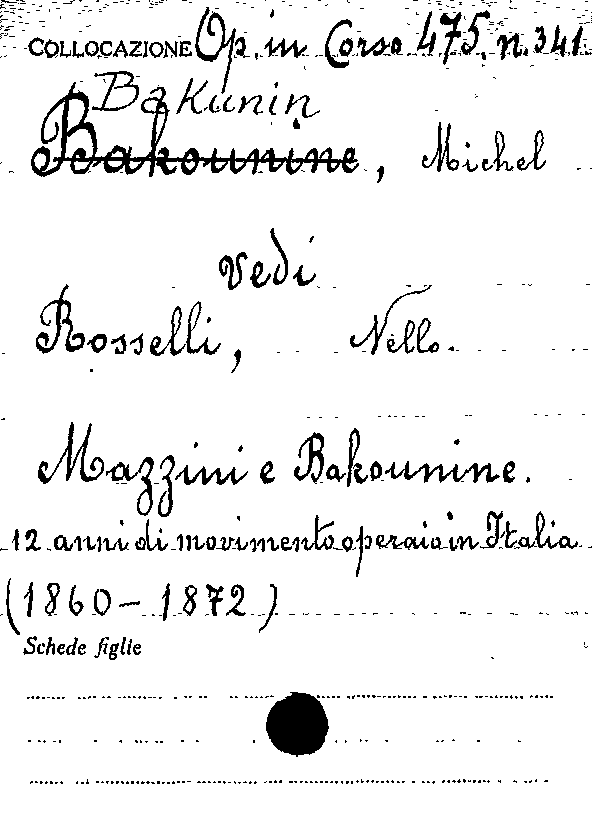 COLLOCAZIONE Op. in Corso 475. n. 341.
Bakunin
Bakounine, Michel
vedi
Rosselli, Nello.
Mazzini e Bakounine.
12 anni di movimento operaio in Italia
(1860 - 1872)
Schede figlie